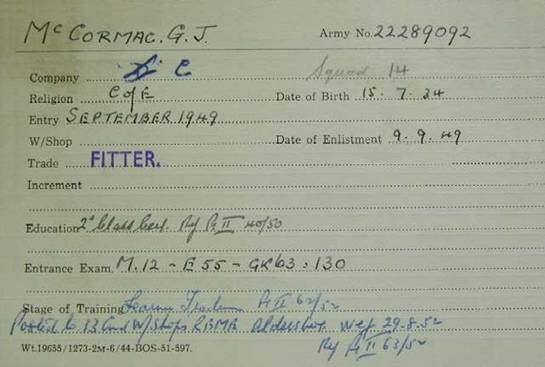 McCORMAC. G. J. Army No. 22289092
Company C Squad 14
Religion C of E Date of Birth 15. 7. 34
Entry SEPTEMBER 1949
W/Shop Date of Enlistment 9. 9. 49
Trade FITTER.
Increment
Education 2d Class Cert. Pt II 40/50
Entrance Exam. M.12 - E 55 - GK63 : 130
Stage of Training Pt II 62/52
Posted to 13 Cmd W/Shops REME Aldershot wef 29.8.52
Pt II 63/52
Wt.19655/1273-2M-6/44-BOS-51-597.